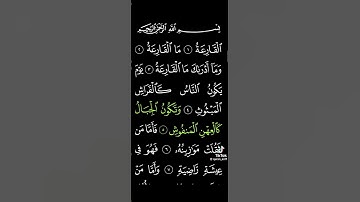 بِسْمِ اللَّهِ الرَّحْمَٰنِ الرَّحِيمِ
ٱلْقَارِعَةُ ١ مَا ٱلْقَارِعَةُ ٢
وَمَآ أَدْرَىٰكَ مَا ٱلْقَارِعَةُ ٣ يَوْمَ
يَكُونُ ٱلنَّاسُ كَٱلْفَرَاشِ
ٱلْمَبْثُوثِ ٤ وَتَكُونُ ٱلْجِبَالُ
كَٱلْعِهْنِ ٱلْمَنفُوشِ ٥ فَأَمَّا مَن
ثَقُلَتْ مَوَٰزِينُهُۥ ٦ فَهُوَ فِى
عِيشَةٍ رَّاضِيَةٍ ٧ وَأَمَّا مَنْ
TikTok